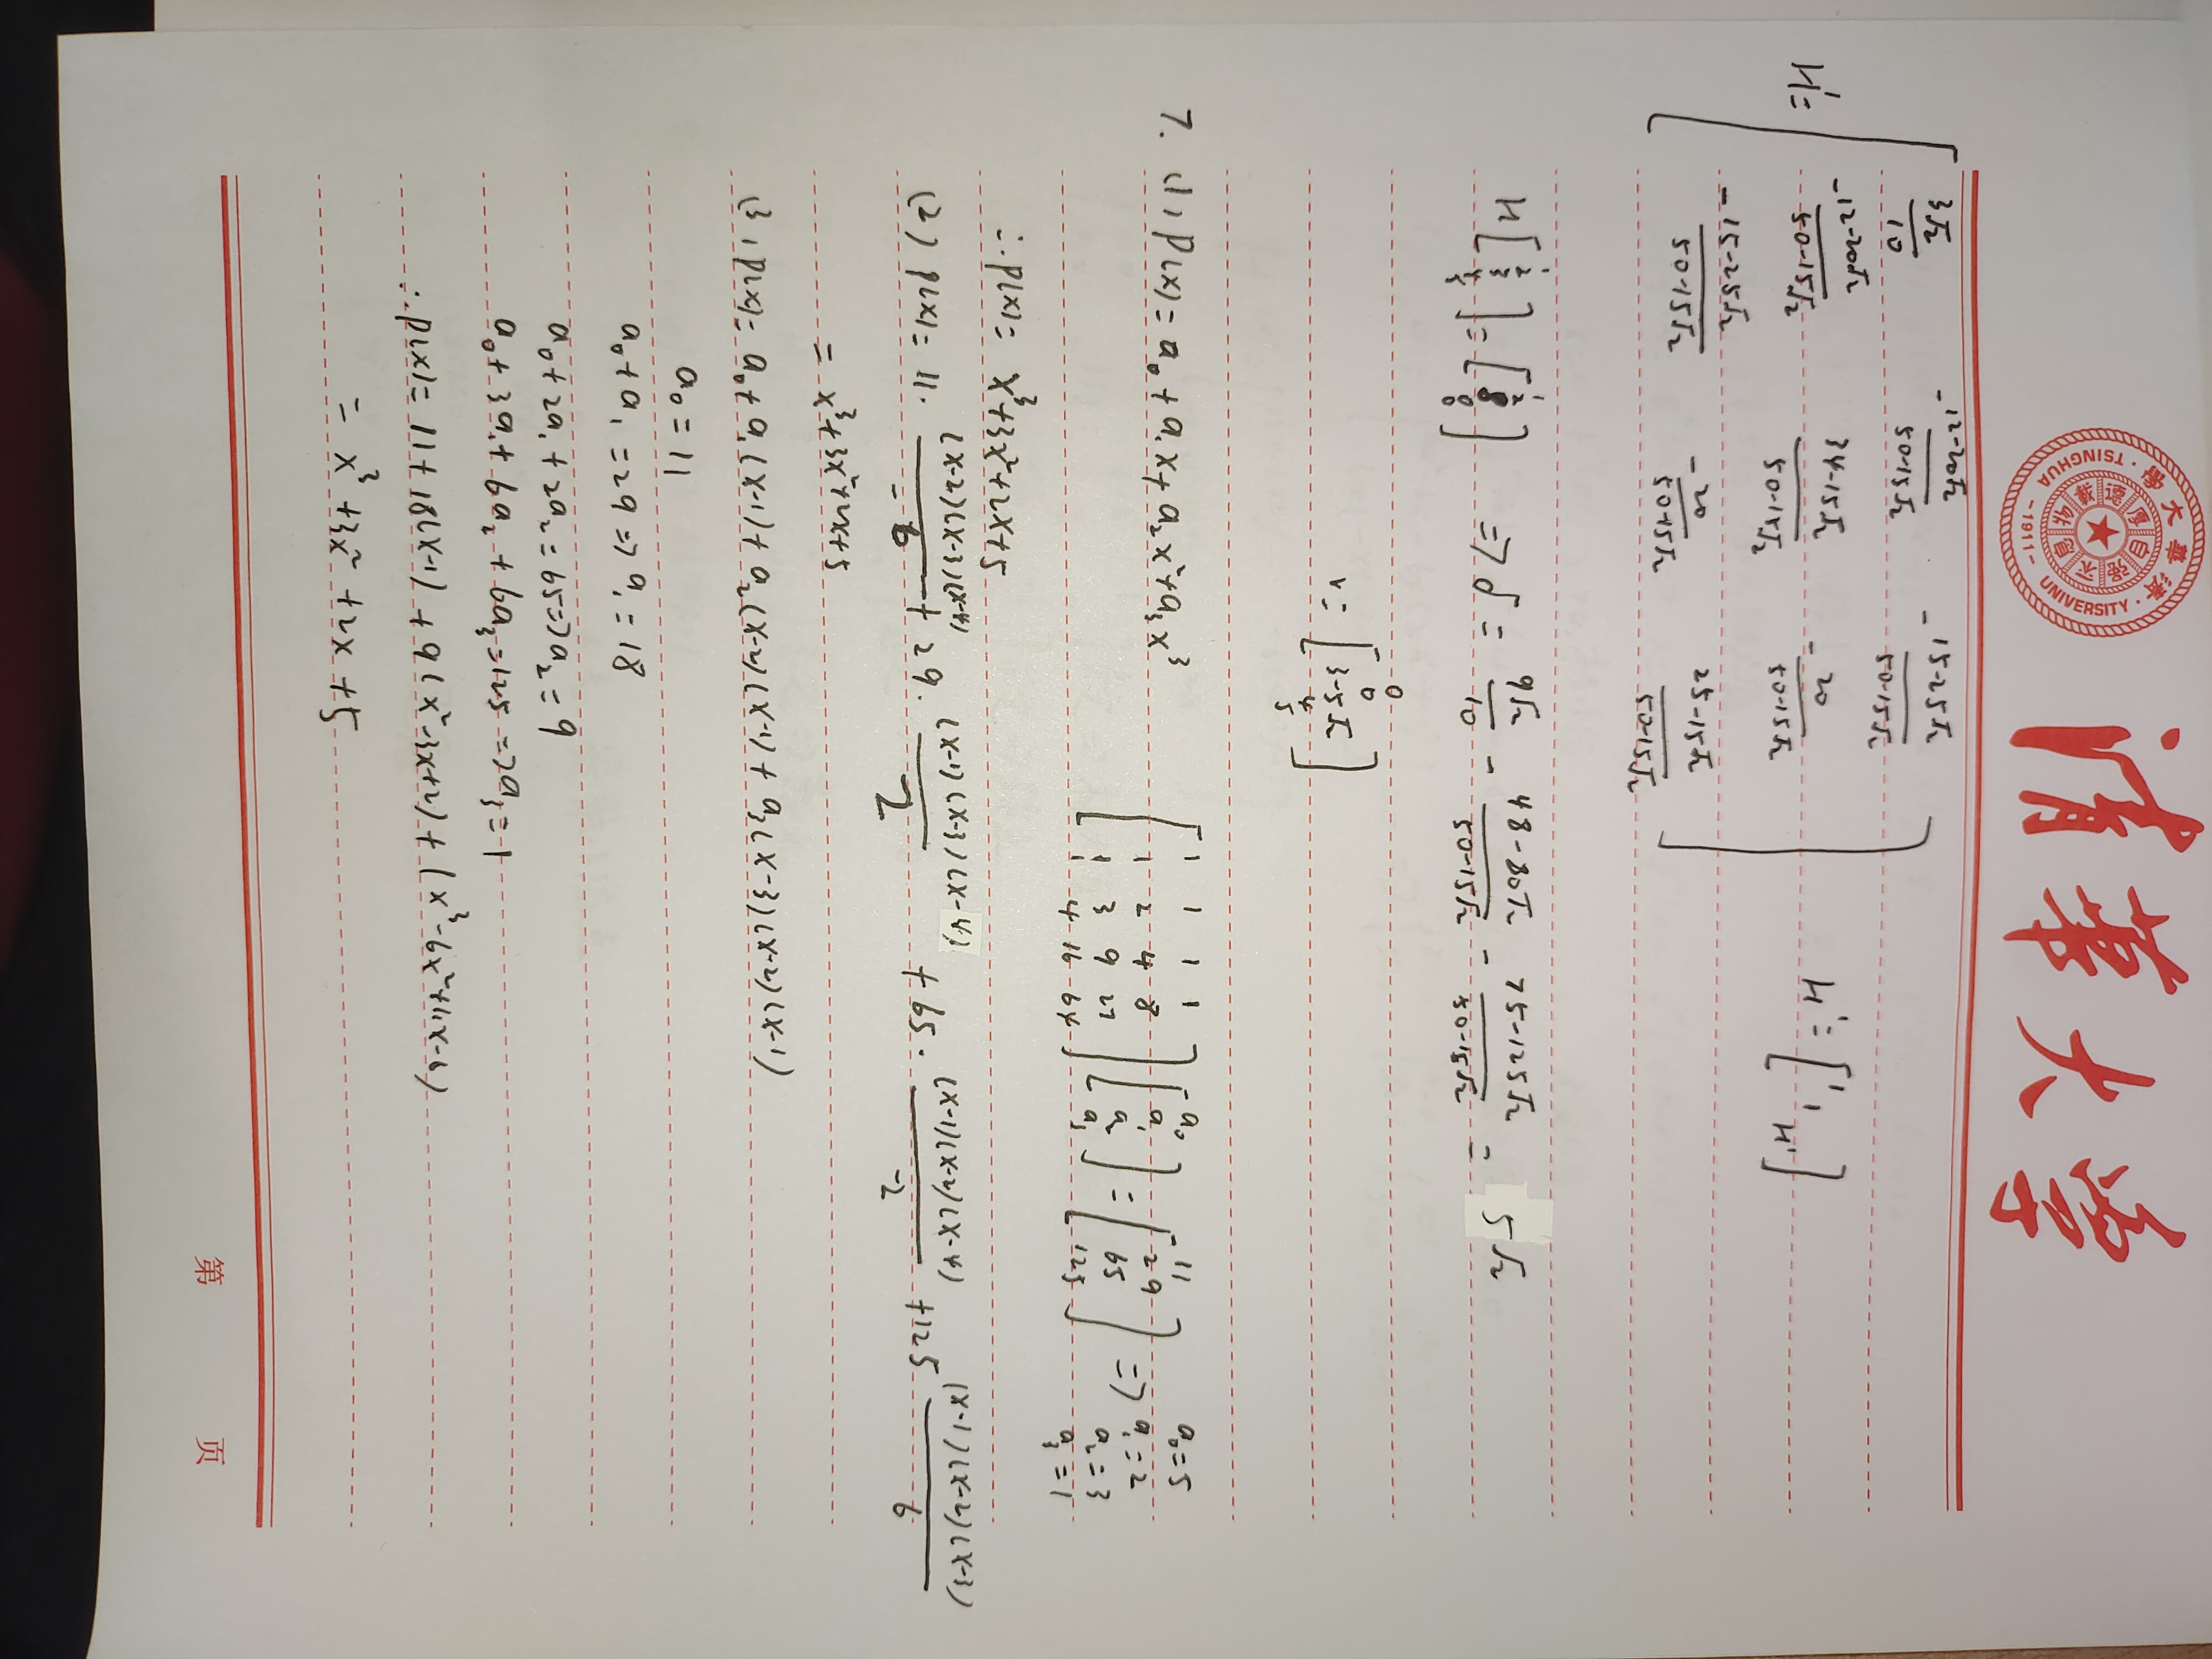 清華大学
學大華清
TSINGHUA UNIVERSITY
自强不息 厚德載物
-1911-
H' = [ 3√2/10  -(12-20√2)/(50-15√2)  -(15-25√2)/(50-15√2)
-(12-20√2)/(50-15√2)  (34-15√2)/(50-15√2)  -20/(50-15√2)
-(15-25√2)/(50-15√2)  -20/(50-15√2)  (25-15√2)/(50-15√2) ]
H' = [ 1 1 H' ]
H [1 2 3 4 5] = [1 2 δ 0 0] => δ = 9√2/10 - (48-80√2)/(50-15√2) - (75-125√2)/(50-15√2) = 5√2
v = [0 0 3-5√2 4 5]
7. (1) P(x) = a₀ + a₁x + a₂x² + a₃x³
[ 1 1 1 1
1 2 4 8
1 3 9 27
1 4 16 64 ] [a₀ a₁ a₂ a₃] = [11 29 65 125] => a₀=5 a₁=2 a₂=3 a₃=1
∴ P(x) = x³+3x²+2x+5
(2) P(x) = 11·(x-2)(x-3)(x-4)/-6 + 29·(x-1)(x-3)(x-4)/2 + 65·(x-1)(x-2)(x-4)/-2 + 125 (x-1)(x-2)(x-3)/6
= x³+3x²+2x+5
(3) P(x) = a₀ + a₁(x-1) + a₂(x-2)(x-1) + a₃(x-3)(x-2)(x-1)
a₀ = 11
a₀ + a₁ = 29 => a₁ = 18
a₀ + 2a₁ + 2a₂ = 65 => a₂ = 9
a₀ + 3a₁ + 6a₂ + 6a₃ = 125 => a₃ = 1
∴ P(x) = 11 + 18(x-1) + 9(x²-3x+2) + (x³-6x²+11x-6)
= x³ + 3x² + 2x + 5
第 页